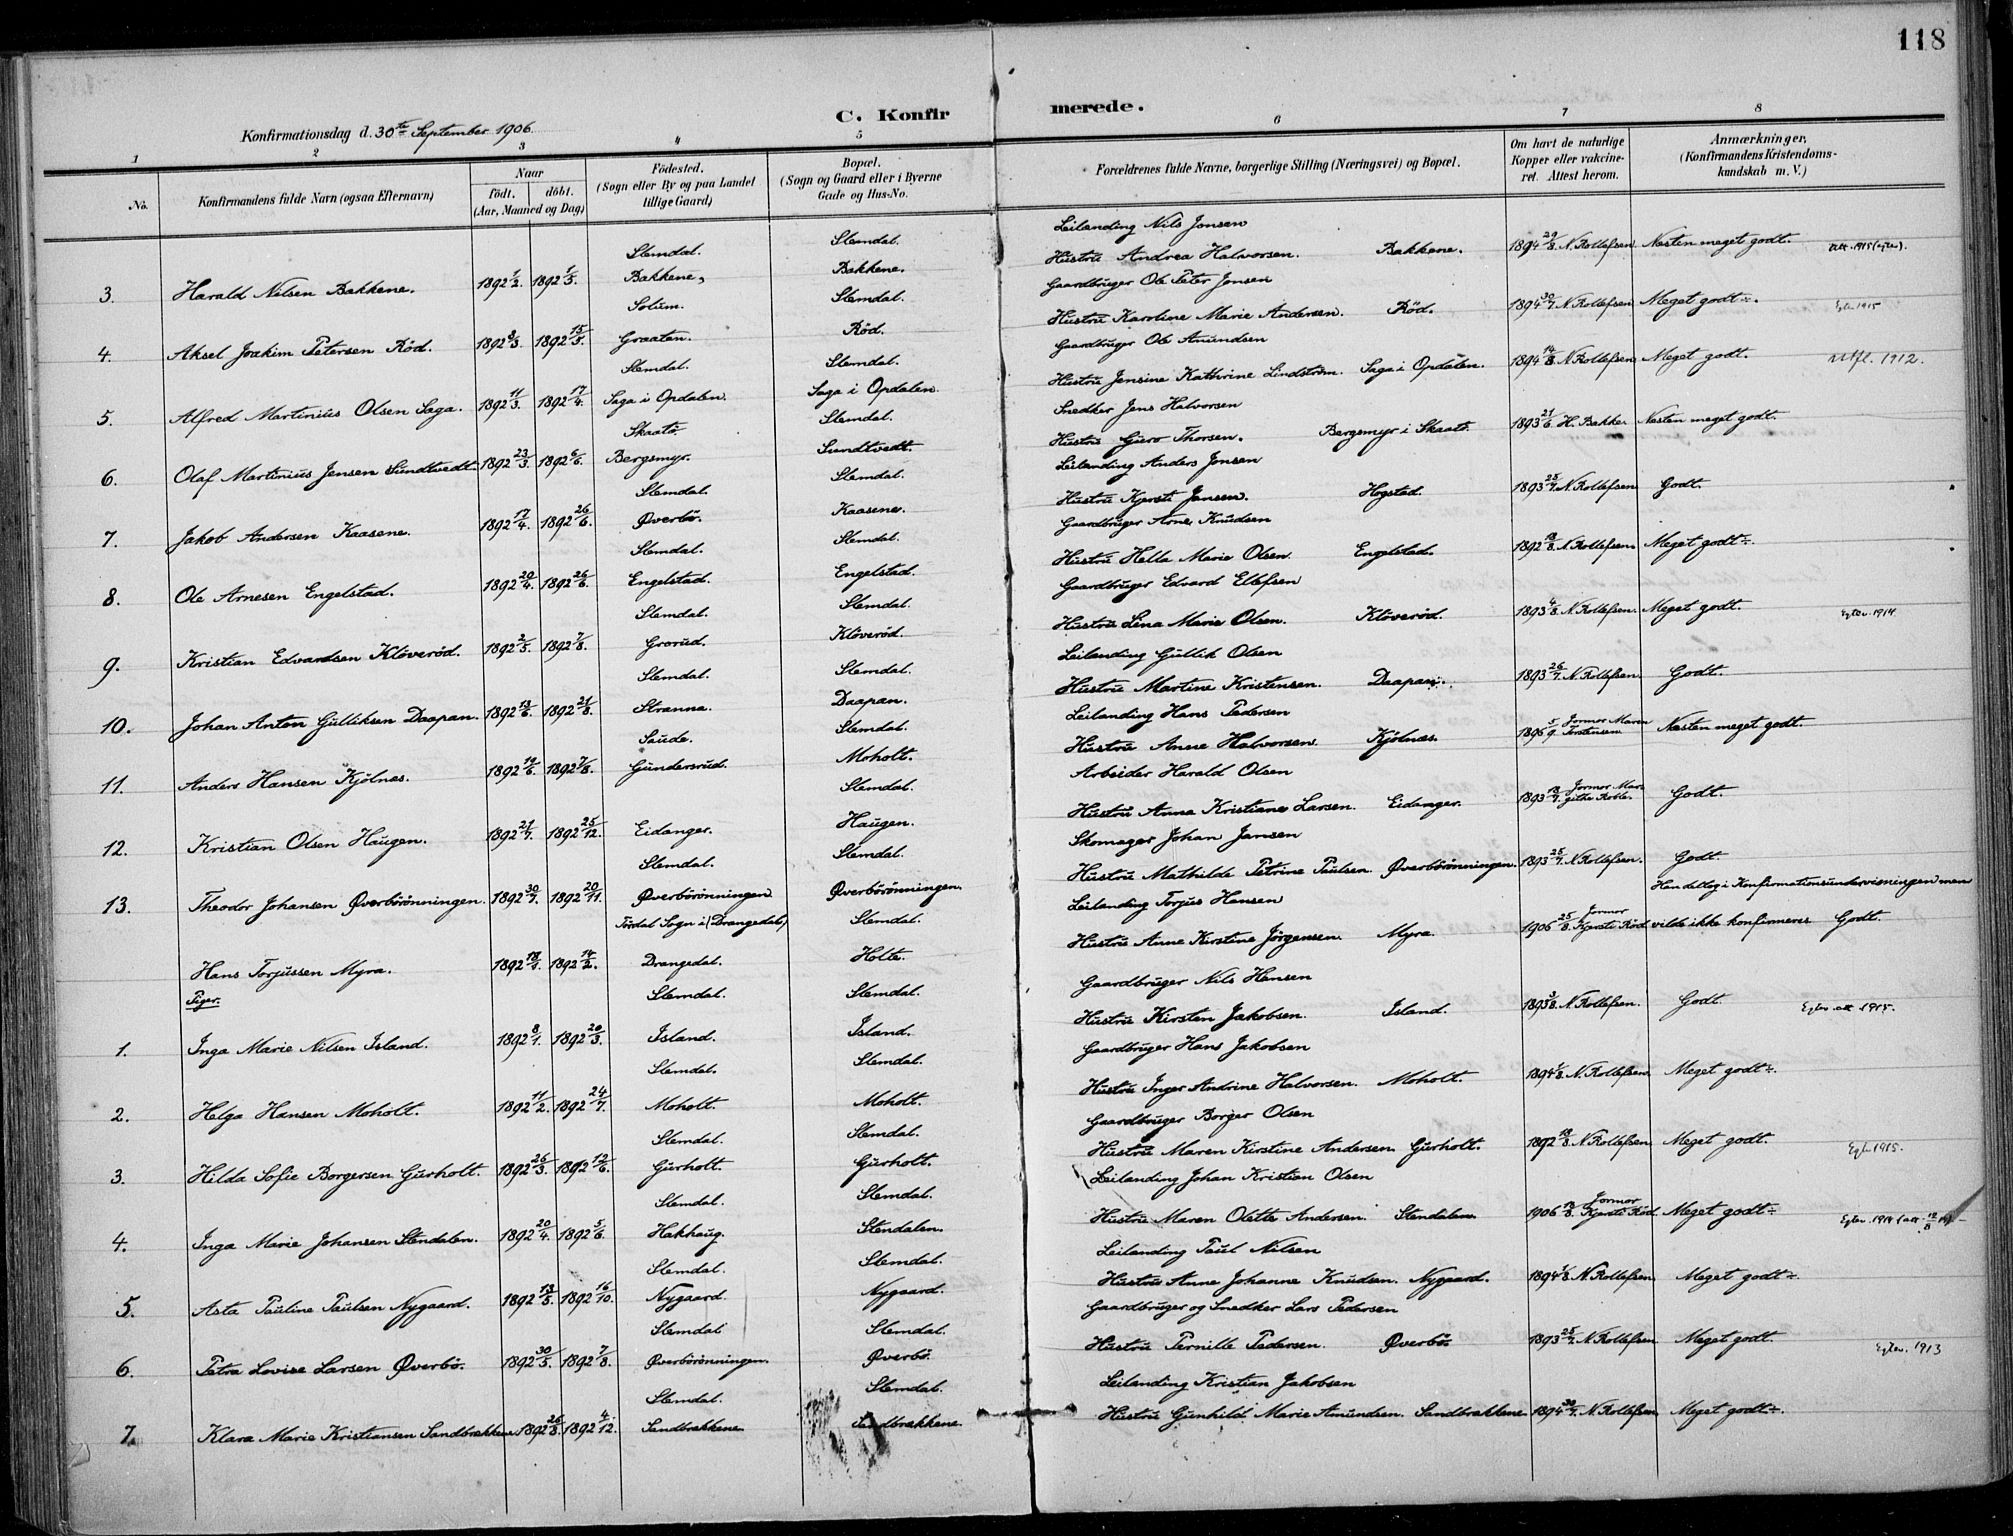 118
C. Konfirmerede.
Konfirmationsdag d. 30te September 1906.
1 2 3 4 5 6 7 8
No. Konfirmandens fulde Navn (ogsaa Efternavn) Naar født. døbt. (Aar, Maaned og Dag) Fødested. (Sogn eller By og paa Landet tillige Gaard) Bopæl. (Sogn og Gaard eller i Byerne Gade og Hus-No. Forældrenes fulde Navne, borgerlige Stilling (Næringsvei) og Bopæl. Om havt de naturlige Kopper eller vakcineret. Attest herom. Anmærkninger. (Konfirmandens Kristendomskundskab m. V.)
Slemdal. Slemdal. Leilending Nils Jonsen
3. Harald Nilsen Bakkene. 1892 1/2. 1892 1/5. Bakkene. Bakkene. Hustru Andrea Halvorsen. Bakkene. 1894 29/8. N. Rollefsen Næsten meget godt.
Solum. Slemdal. Gaardbruger Ole Peter Jensen
4. Aksel Joakim Petersen Röd. 1892 8/3. 1892 15/5. Graaten. Röd. Hustru Karoline Marie Andersen. Röd. 1894 30/7. N. Rollefsen Meget godt ÷. 1915
Slemdal. Slemdal. Gaardbruger Ole Amundsen
5. Alfred Martinius Olsen Saga. 1892 11/3. 1892 17/4. Saga i Opdalen. Saga i Opdalen. Hustru Jensine Kathrine Lindström. Saga i Opdalen. 1894 14/8. N. Rollefsen Meget godt. utfl. 1912.
Skaatö. Slemdal. Snedker Jens Halvorsen
6. Olaf Martinius Jensen Sundtvedt. 1892 23/3. 1892 6/6. Bergsmyr. Sundtvedt. Hustru Guro Thorsen. Bergsmyr i Skaatö. 1893 21/6. H. Bakke. Næsten meget godt.
Slemdal. Slemdal. Leilending Anders Jensen
7. Jakob Andersen Kaasene. 1892 17/4. 1892 26/6. Øverbö. Kaasene. Hustru Kjersti Jansen. Hogstad. 1893 25/7. N. Rollefsen Godt.
Slemdal. Slemdal. Gaardbruger Arne Knudsen
8. Ole Arnesen Engelstad. 1892 20/4. 1892 26/6. Engelstad. Engelstad. Hustru Hella Marie Olsen. Engelstad. 1892 18/8. N. Rollefsen Meget godt ÷.
Slemdal. Slemdal. Gaardbruger Edvard Ellefsen
9. Kristian Edvardsen Klöveröd. 1892 2/5. 1892 7/8. Grorud. Klöveröd. Hustru Lina Marie Olsen. Klöveröd. 1893 4/8. N. Rollefsen. Meget godt. 1914
Slemdal. Slemdal. Leilending Gullik Olsen
10. Johan Anton Gulliksen Daapan. 1892 13/6. 1892 21/8. Stranna. Daapan. Hustru Martine Kristensen. Daapan. 1893 26/7. N. Rollefsen. Godt.
Saude. Slemdal. Leilending Hans Pedersen
11. Anders Hansen Kjölnes. 1892 19/6. 1892 7/8. Gundersrud. Moholt. Hustru Anne Halvorsen. Kjölnes. 1896 5/9. Jormor Maren Torstensen. Næsten meget godt.
Slemdal. Arbeider Harald Olsen
12. Kristian Olsen Haugen. 1892 21/7. 1892 25/12. Eidanger. Haugen. Hustru Anna Kristiane Larsen. Eidanger. 1893 18/7. Jormor Godt.
Slemdal. Slemdal. Skomager Johan Jansen
13. Theodor Johansen Øverbörönningen. 1892 30/7. 1892 20/11. Øverbörönningen. Øverbörönningen. Hustru Mathilde Petrine Paulsen. Øverbörönningen. 1893 25/7. N. Rollefsen. Godt.
Tördal Sogn i (Drangedal) Slemdal. Leilending Torjus Hansen Han deltog i Konfirmationsundervisningen men
Hans Torjussen Myra. 1892 18/1. 1892 14/2. Drangedal. Holte. Hustru Anne Kirstine Jörgensen. Myra. 1906 25/8. Jormor Kjersti Röd vilde ikke konfirmeres Godt.
Piger.
Slemdal. Slemdal. Gaardbruger Nils Hansen
1. Inga Marie Nilsen Island. 1892 8/1. 1892 20/3. Island. Island. Hustru Kirsten Jakobsen. Island. 1893 3/8. N. Rollefsen. Godt. 1915.
Slemdal. Slemdal. Gaardbruger Hans Jakobsen
2. Helga Hansen Moholt. 1892 11/2. 1892 24/7. Moholt. Moholt. Hustru Inger Andrine Halvorsen. Moholt. 1894 1/8. N. Rollefsen. Meget godt ÷.
Slemdal. Slemdal. Gaardbruger Borger Olsen
3. Hilda Sofie Borgersen Gurholt. 1892 26/3. 1892 12/6. Gurholt. Gurholt. Hustru Maren Kirstine Andersen. Gurholt. 1892 18/8. N. Rollefsen Meget godt. 1915.
Slemdal. Slemdal. Leilending Johan Kristian Olsen
4. Inga Marie Johansen Stendalen. 1892 20/4. 1892 5/6. Hakhaug. Stendalen. Hustru Maren Olette Andersen. Stendalen. 1906 Jormor Kjersti Röd Meget godt ÷
Slemdal. Slemdal. Leilending Paul Nilsen
5. Asta Pauline Paulsen Nygaard. 1892 13/5. 1892 16/10. Nygaard. Nygaard. Hustru Anne Johanne Knudsen. Nygaard. 1894 1/8. N. Rollefsen. Meget godt ÷.
Slemdal Slemdal. Gaardbruger og Snedker Lars Pedersen
6. Petra Lovise Larsen Øverbö. 1892 30/5. 1892 7/8. Øverbörönningen. Øverbö. Hustru Pernille Pedersen. Øverbö. 1893 25/7. N. Rollefsen Meget godt. 1913
Slemdal. Slemdal. Leilending Kristian Jakobsen
7. Klara Marie Kristiansen Sandbrækkene. 1892 26/8. 1892 4/12. Sandbrækkene Sandbrækkene. Hustru Gunhild Marie Amundsen. Sandbrækkene 1894 30/7. N. Rollefsen Meget godt ÷.